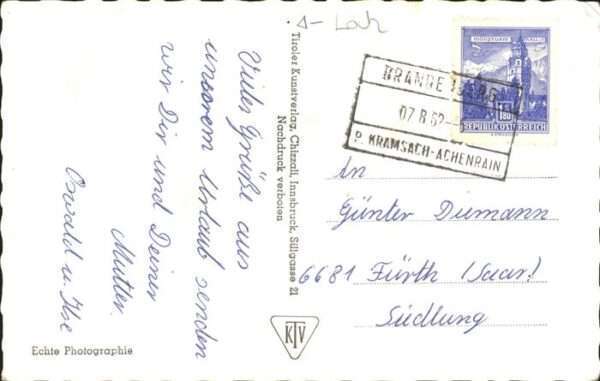 Viele Grüße aus
unserem Urlaub senden
wir Dir und Deiner
Mutter.
Oswald u. Ilse
Echte Photographie
Tiroler Kunstverlag, Chizzali, Innsbruck, Sillgasse 21
Nachdruck verboten
KTV
1.80
REPUBLIK ÖSTERREICH
BRANDE
07 8 62
P. KRAMSACH-ACHENRAIN
An
Günter Diemann
6681 Fürth (Saar)
Siedlung